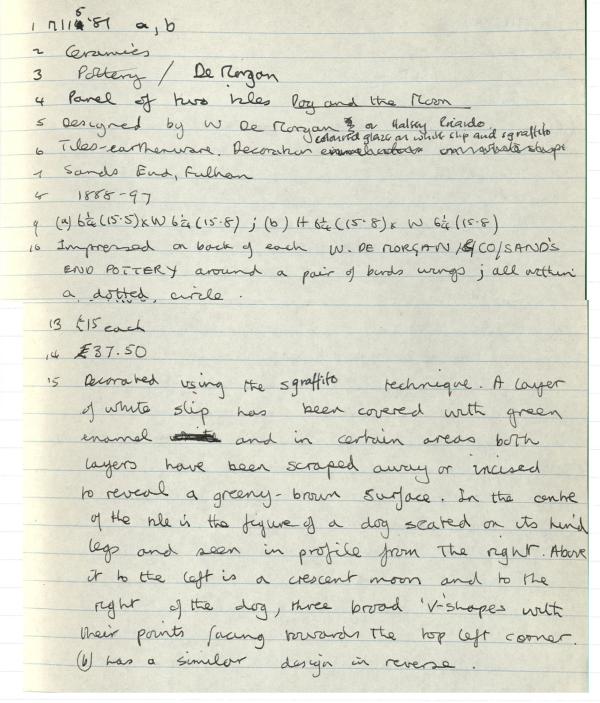 1 n115'87 a, b
2 Ceramics
3 Pottery / De Morgan
4 Panel of two tiles Dog and the Moon
5 Designed by W De Morgan & or Halsey Ricardo
coloured glaze on white slip and sgraffito
6 Tiles-earthenware. Decoration
7 Sands End, Fulham
8 1888-97
9 (a) 6¼ (15.5) x W 6¼ (15.8) ; (b) H 6¼ (15.8) x W 6¼ (15.8)
10 Impressed on back of each W. DE MORGAN / & CO / SAND'S
END POTTERY around a pair of birds wings ; all within
a dotted circle.
13 £15 each
14 £37.50
15 Decorated using the sgraffito technique. A layer
of white slip has been covered with green
enamel and in certain areas both
layers have been scraped away or incised
to reveal a greeny-brown surface. In the centre
of the tile is the figure of a dog seated on its hind
legs and seen in profile from the right. Above
it to the left is a crescent moon and to the
right of the dog, three broad 'V'-shapes with
their points facing towards the top left corner.
(b) has a similar design in reverse.